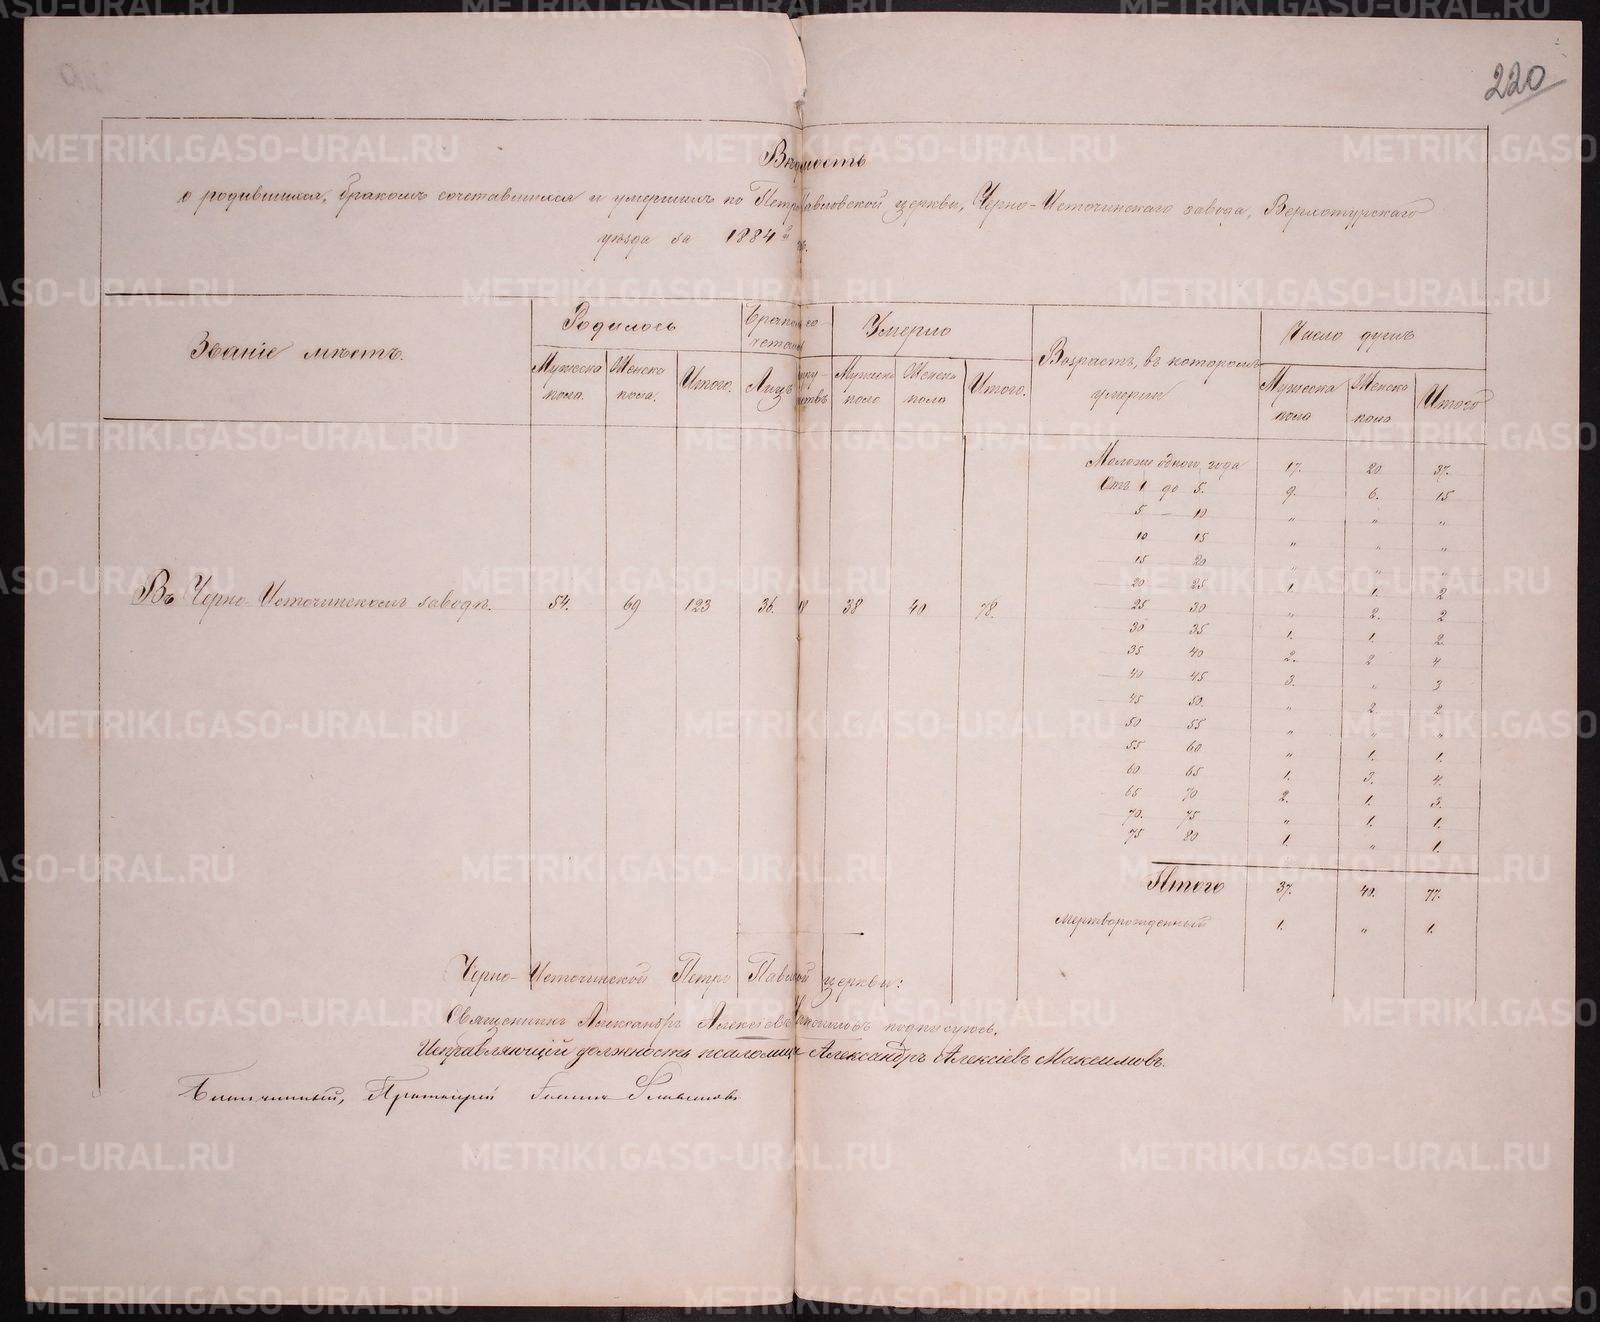 220
Вѣдомость
о родившихся, бракомъ сочетавшихся и умершихъ по Петропавловской церкви, Черно-Источинскаго завода, Верхотурскаго
уѣзда за 1884й г.
Званіе мѣстъ. Родилось Умерло Возрастъ, въ которомъ умерли Число душъ
Мужеска пола. Женска пола. Итого. Лицъ Мужеска пола Женска пола Итого. Мужеска пола Женска пола Итого
Моложе одного года 17. 20. 37.
Отъ 1 до 5. 9. 6. 15
5 — 10 „ „ „
10 15 „ „ „
15 20 „ „ „
20 25 1. 1. 2
Въ Черно-Источинскомъ заводѣ. 54. 69 123 36. 18 38 40 78.
25 30 „ 2. 2
30 35 1. 1. 2.
35 40 2. 2 4
40 45 3. „ 3
45 50. „ 2. 2.
50 55 „ „ „
55 60 „ 1. 1.
60 65 1. 3. 4.
65 70 2. 1. 3.
70. 75 „ 1. 1.
75 80 1. „ 1.
Итого 37. 40. 77.
Мертворожденный 1. „ 1.
Черно-Источинской Петро Павловской церкви:
Священникъ Александръ Алексіевъ подписуюсь.
Исправляющій должность псаломщ. Александръ Алексіевъ Максимовъ.
Благочинный, Протоіерей Іоаннъ
METRIKI.GASO-URAL.RU